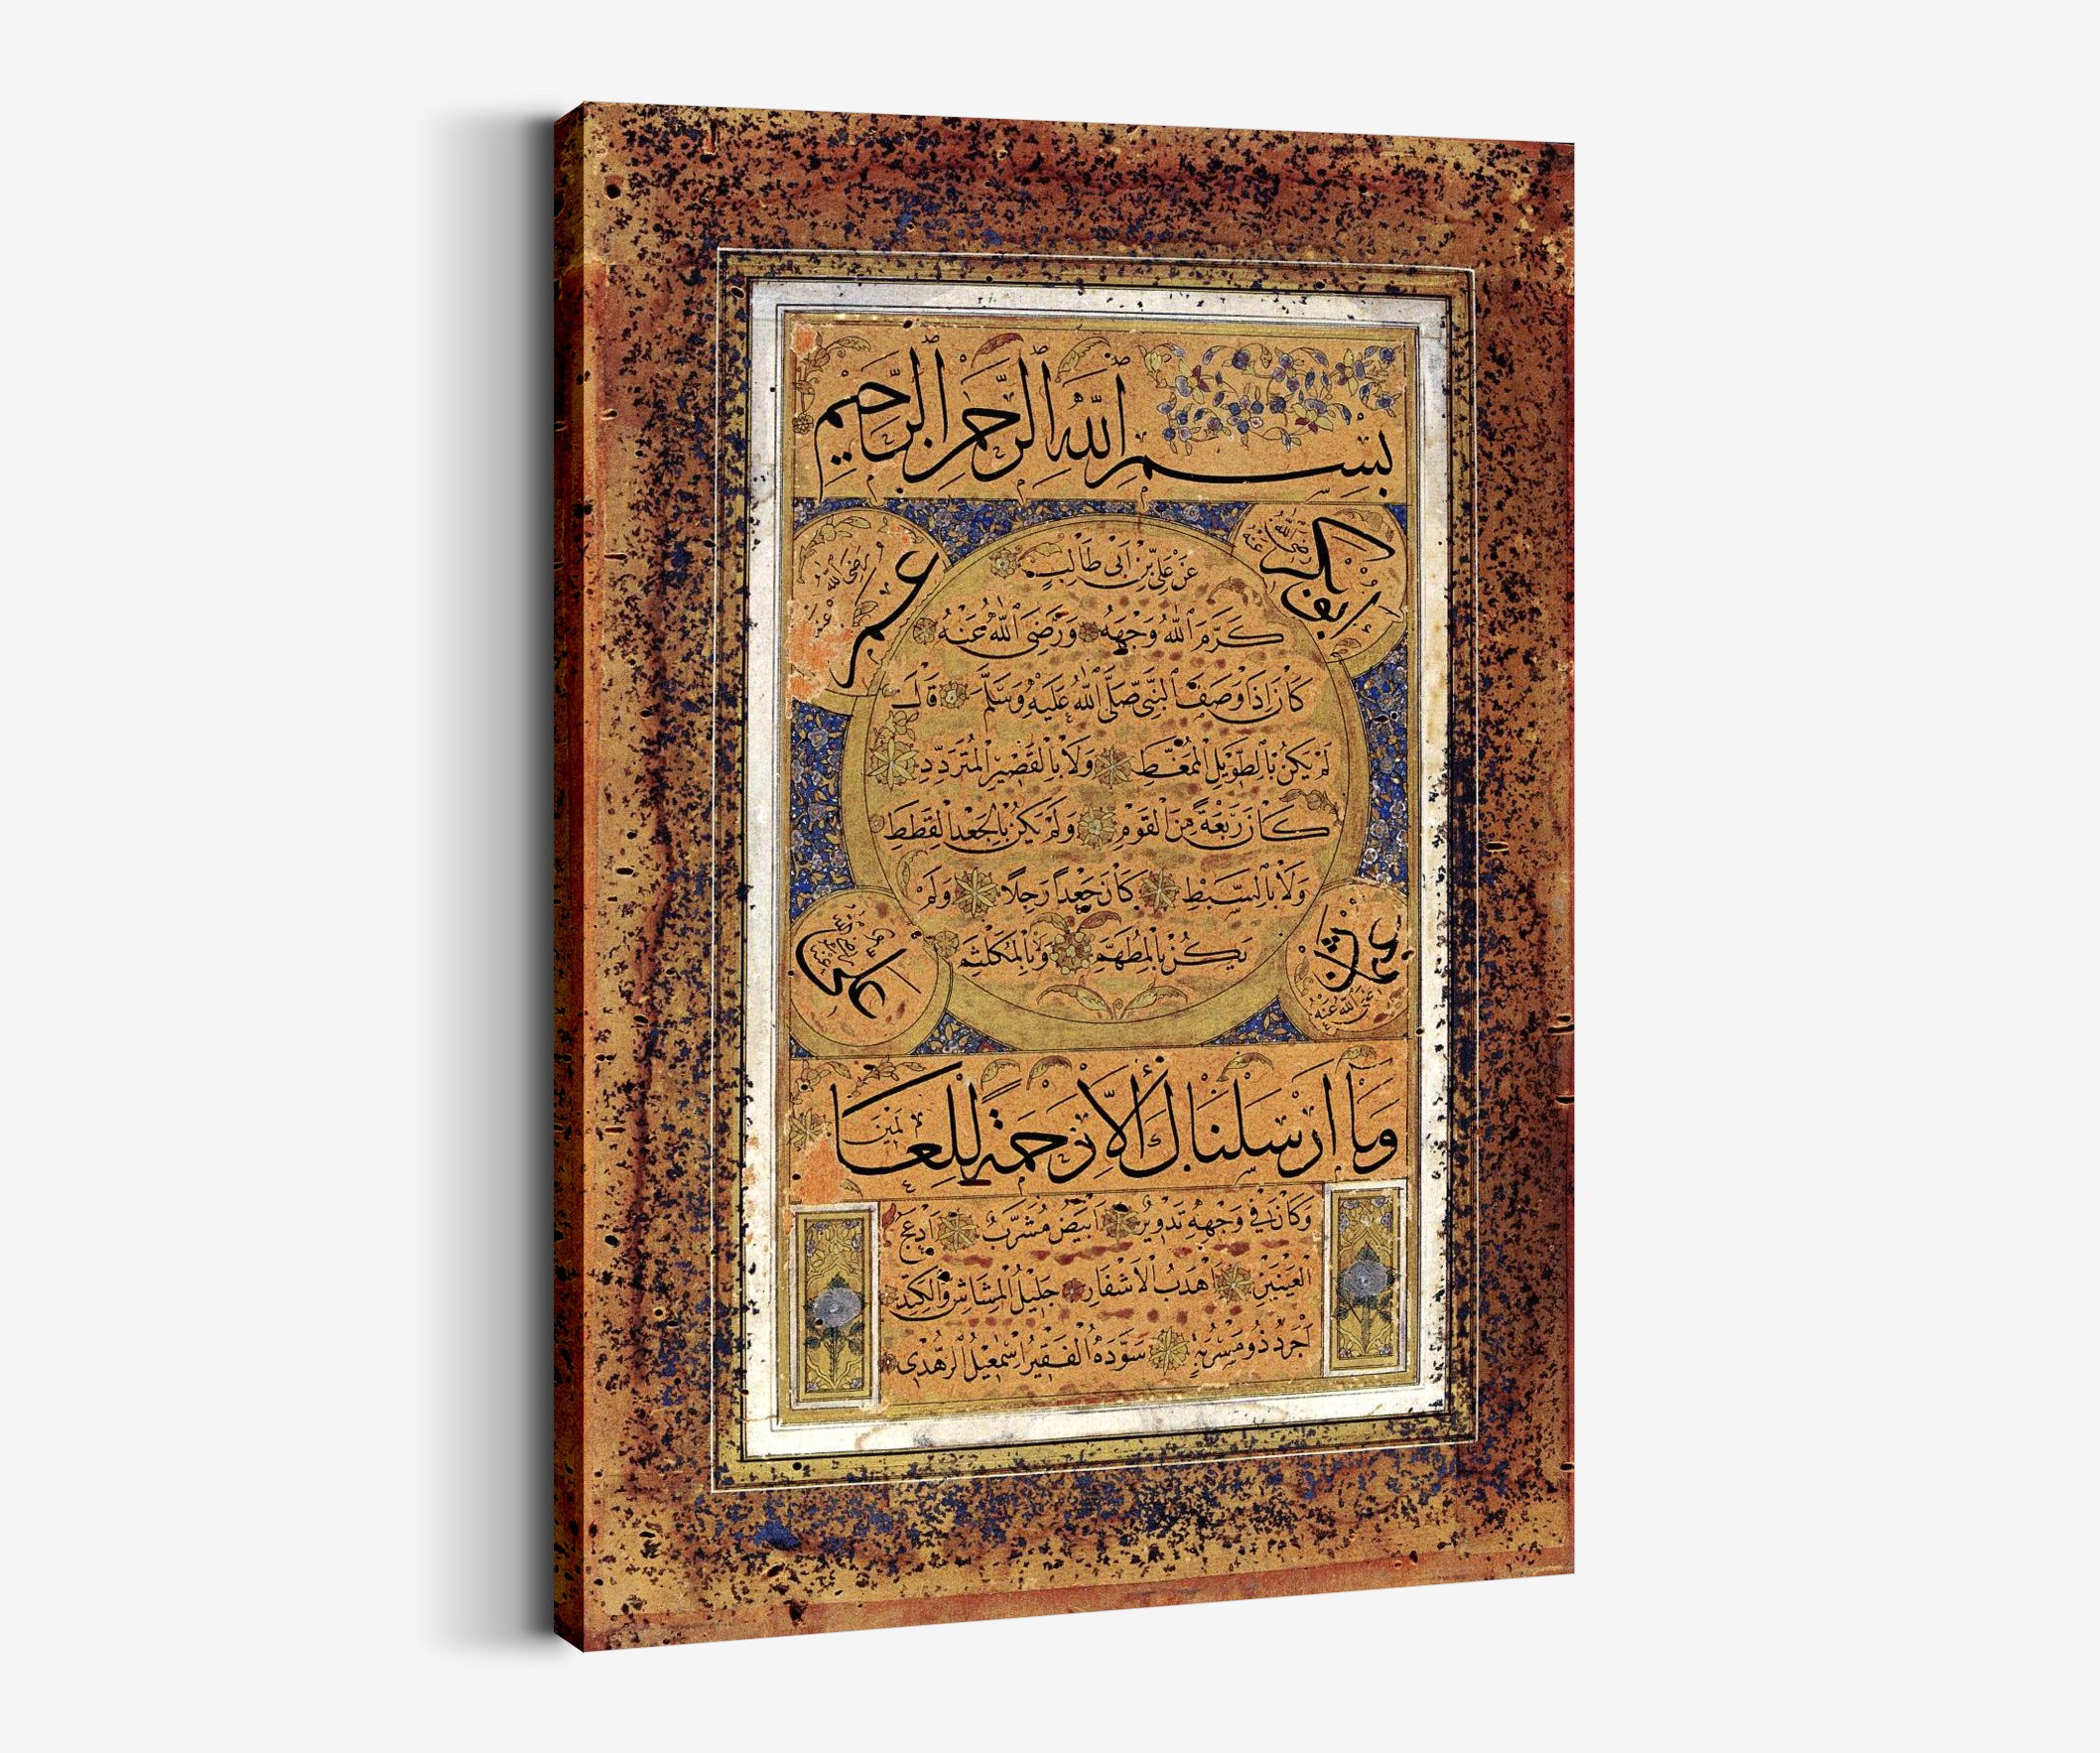 بِسْمِ اللّٰهِ الرَّحْمٰنِ الرَّحِيمِ
ابو بكر رضى الله عنه
عمر رضى الله عنه
عَنْ عَلِيِّ بْنِ اَبِى طَالِبٍ
كَرَّمَ اللّٰهُ وَجْهَهُ وَرَضِىَ اللّٰهُ عَنْهُ
كَانَ اِذَا وَصَفَ النَّبِىَّ صَلَّى اللّٰهُ عَلَيْهِ وَسَلَّمَ قَالَ
لَمْ يَكُنْ بِالطَّوِيلِ الْمُمَّغِطِ وَلَا بِالْقَصِيرِ الْمُتَرَدِّدِ
كَانَ رَبْعَةً مِنَ الْقَوْمِ وَلَمْ يَكُنْ بِالْجَعْدِ الْقَطَطِ
وَلَا بِالسَّبْطِ كَانَ جَعْدًا رَجِلًا وَلَمْ
يَكُنْ بِالْمُطَهَّمِ وَلَا بِالْمُكَلْثَمِ
عثمان رضى الله عنه
على رضى الله عنه
وَمَا اَرْسَلْنَاكَ اِلَّا رَحْمَةً لِلْعَالَمِينَ
وَكَانَ فِى وَجْهِهِ تَدْوِيرٌ اَبْيَضُ مُشْرَبٌ اَدْعَجُ
الْعَيْنَيْنِ اَهْدَبُ الْاَشْفَارِ جَلِيلُ الْمُشَاشِ وَالْكَتَدِ
اَجْرَدُ ذُو مَسْرُبَةٍ سَوَّدَهُ الْفَقِيرُ اِسْمٰعِيلُ الزُّهْدِى